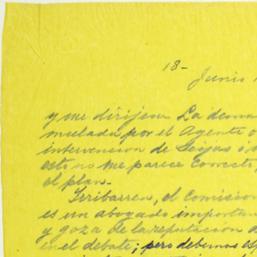 18-
Junio
y me dirijera La dema
mulada por el Agente o
intervencion de Seijas i
esto no me parece correcto,
el plan.
Iribarren, el Comision
es un abogado important
y goza de la reputacion d
en el debate; pero debemos es